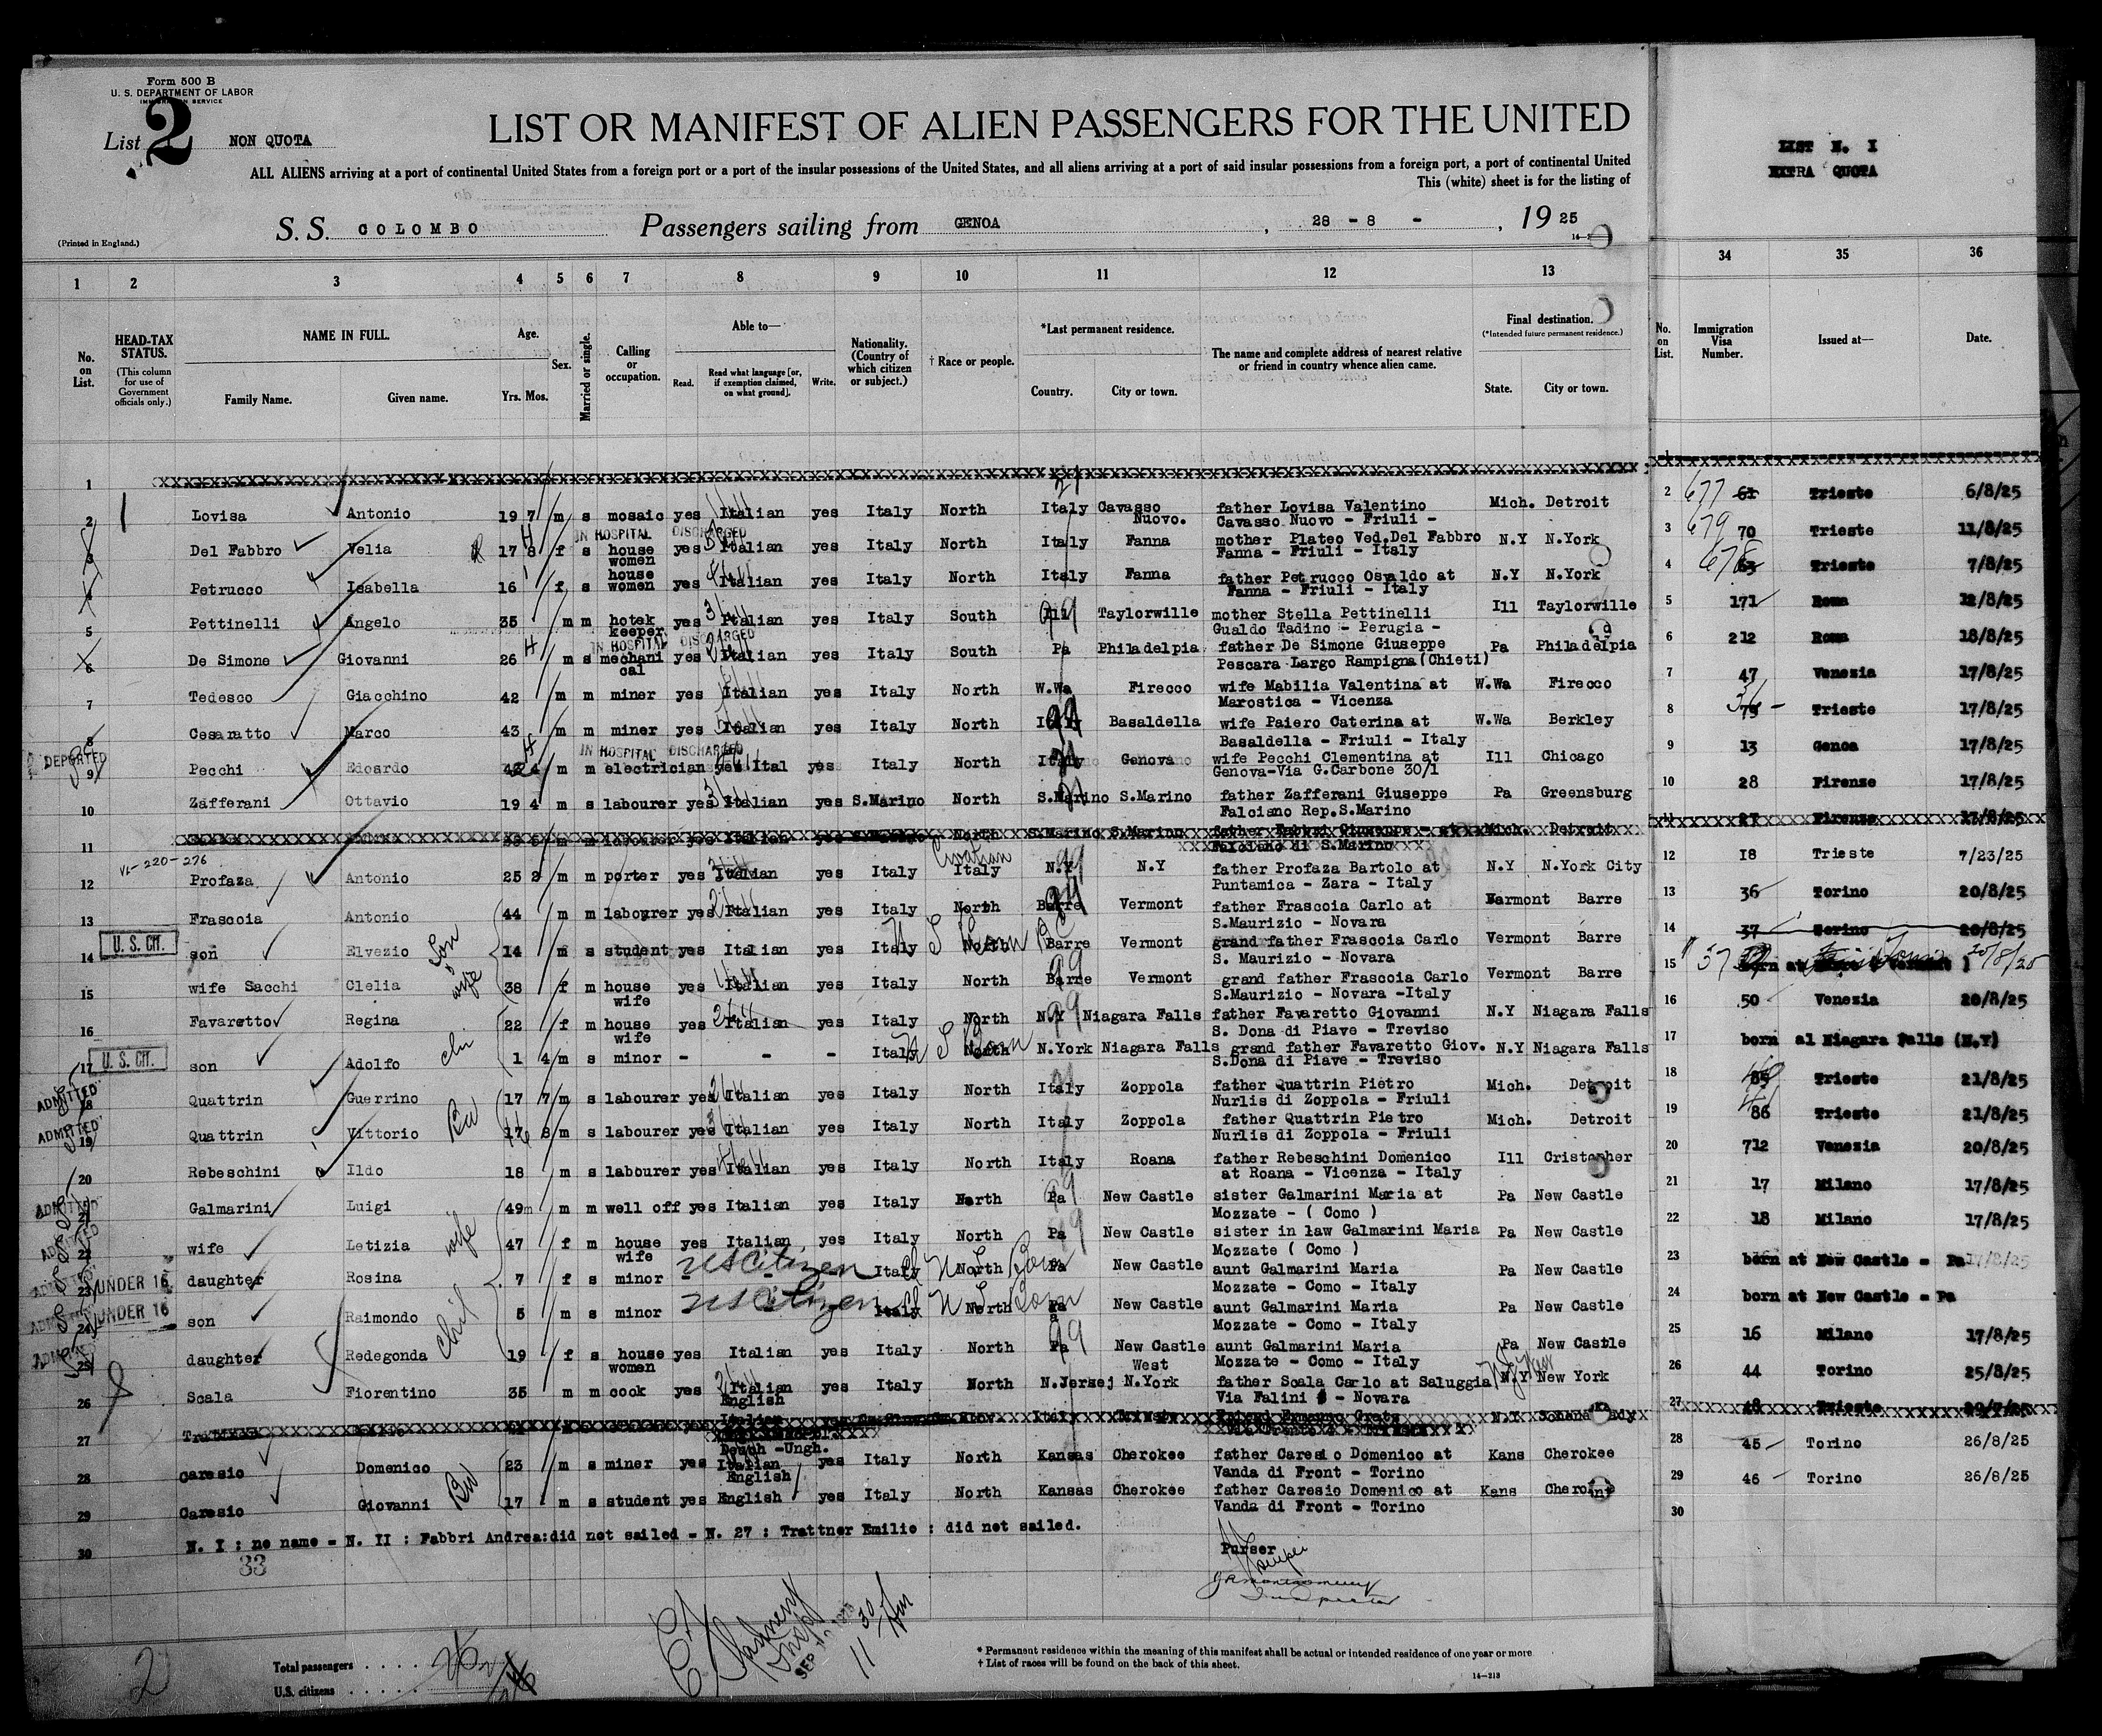 Form 500 B
U. S. DEPARTMENT OF LABOR
IMMIGRATION SERVICE
List 2 NON QUOTA
LIST OR MANIFEST OF ALIEN PASSENGERS FOR THE UNITED
ALL ALIENS arriving at a port of continental United States from a foreign port or a port of the insular possessions of the United States, and all aliens arriving at a port of said insular possessions from a foreign port, a port of continental United
This (white) sheet is for the listing of
S. S. COLOMBO Passengers sailing from GENOA , 28 - 8 - , 19 25
(Printed in England.)
LIST N. I
EXTRA QUOTA
1 2 3 4 5 6 7 8 9 10 11 12 13
34 35 36
No. on List.
HEAD-TAX STATUS.
(This column for use of Government officials only.)
NAME IN FULL.
Family Name. Given name.
Age.
Yrs. Mos.
Sex.
Married or single.
Calling or occupation.
Able to—
Read. Read what language [or, if exemption claimed, on what ground]. Write.
Nationality. (Country of which citizen or subject.)
† Race or people.
*Last permanent residence.
Country. City or town.
The name and complete address of nearest relative or friend in country whence alien came.
Final destination.
(*Intended future permanent residence.)
State. City or town.
No. on List.
Immigration Visa Number.
Issued at—
Date.
1
2 Lovisa Antonio 19 7 m s mosaic yes Italian yes Italy North Italy Cavasso Nuovo. father Lovisa Valentino Mich. Detroit
Cavasso Nuovo - Friuli -
2 677 61 Trieste 6/8/25
IN HOSPITAL DISCHARGED
3 Del Fabbro Velia 17 8 f s house women yes Italian yes Italy North Italy Fanna mother Plateo Ved.Del Fabbro N.Y N.York
Fanna - Friuli - Italy
3 679 70 Trieste 11/8/25
4 Petrucco Isabella 16 f s house women yes Italian yes Italy North Italy Fanna father Petrucco Osvaldo at N.Y N.York
Fanna - Friuli - Italy
4 678 Trieste 7/8/25
5 Pettinelli Angelo 35 m m hotek keeper yes Italian yes Italy South Ill Taylorwille mother Stella Pettinelli Ill Taylorwille
Gualdo Tadino - Perugia -
5 171 Roma 12/8/25
IN HOSPITAL DISCHARGED
6 De Simone Giovanni 26 m s mechani cal yes Italian yes Italy South Pa Philadelpia father De Simone Giuseppe Pa Philadelpia
Pescara Largo Rampigna(Chieti)
6 212 Roma 18/8/25
7 Tedesco Giacchino 42 m m miner yes Italian yes Italy North W.Wa Firecco wife Mabilia Valentina at W.Wa Firecco
Marostica - Vicenza
7 47 Venezia 17/8/25
8 Cesaratto Marco 43 m m miner yes Italian yes Italy North Italy Basaldella wife Paiero Caterina at W.Wa Berkley
Basaldella - Friuli - Italy
8 Trieste 17/8/25
DEPORTED
IN HOSPITAL DISCHARGED
9 Pecchi Edoardo m m electrician yes Ital yes Italy North Italy Genova wife Pecchi Clementina at Ill Chicago
Genova-Via G.Carbone 30/1
9 13 Genoa 17/8/25
10 Zafferani Ottavio 19 4 m s labourer yes Italian yes S.Marino North S.Marino S.Marino father Zafferani Giuseppe Pa Greensburg
Falciano Rep.S.Marino
10 28 Firenze 17/8/25
11 m labourer yes Italian North S.Marino S.Marino father Fabbri Giuseppe - Mich. Detroit
Falciano di S.Marino
27 Firenze 17/8/25
VL-220-276
Croatian
12 Profaza Antonio 25 2 m m porter yes Italian yes Italy Italy N.Y N.Y father Profaza Bartolo at N.Y N.York City
Puntamica - Zara - Italy
12 18 Trieste 7/23/25
13 Frascoia Antonio 44 m m labourer yes Italian yes Italy North Barre Vermont father Frascoia Carlo at Vermont Barre
S.Maurizio - Novara
13 36 Torino 20/8/25
U. S. CIT. Son U S Born
14 son Elvezio 14 m s student yes Italian yes Italy North Barre Vermont grand father Frascoia Carlo Vermont Barre
S. Maurizio - Novara
14 37 Torino 20/8/25
wife
15 wife Sacchi Clelia 38 f m house wife yes Italian yes Italy North Barre Vermont grand father Frascoia Carlo Vermont Barre
S.Maurizio - Novara -Italy
15 37 born at 20/8/25
16 Favaretto Regina 22 f m house wife yes Italian yes Italy North N.Y Niagara Falls father Favaretto Giovanni N.Y Niagara Falls
S. Dona di Piave - Treviso
16 50 Venezia 20/8/25
U. S. CIT. U S Born
17 son Adolfo 1 4 m s minor - - - Italy North N.York Niagara Falls grand father Favaretto Giov. N.Y Niagara Falls
S.Dona di Piave - Treviso
17 born al Niagara Falls (N.Y)
ADMITTED
18 Quattrin Guerrino 17 7 m s labourer yes Italian yes Italy North Italy Zoppola father Quattrin Pietro Mich. Detroit
Nurlis di Zoppola - Friuli
18 85 Trieste 21/8/25
ADMITTED
19 Quattrin Vittorio 8 m s labourer yes Italian yes Italy North Italy Zoppola father Quattrin Pietro Mich. Detroit
Nurlis di Zoppola - Friuli
19 86 Trieste 21/8/25
20 Rebeschini Ildo 18 m s labourer yes Italian yes Italy North Italy Roana father Rebeschini Domenico Ill Cristopher
at Roana - Vicenza - Italy
20 712 Venezia 20/8/25
ADMITTED
21 Galmarini Luigi 49 m m well off yes Italian yes Italy North Pa New Castle sister Galmarini Maria at Pa New Castle
Mozzate - ( Como )
21 17 Milano 17/8/25
ADMITTED wife
22 wife Letizia 47 f m house wife yes Italian yes Italy North Pa New Castle sister in law Galmarini Maria Pa New Castle
Mozzate ( Como )
22 18 Milano 17/8/25
ADMITTED UNDER 16 US Citizen U S Born
23 daughter Rosina 7 f s minor Italy North Pa New Castle aunt Galmarini Maria Pa New Castle
Mozzate - Como - Italy
23 born at New Castle - Pa
UNDER 16 US Citizen U S Born
24 son Raimondo 5 m s minor Italy North Pa New Castle aunt Galmarini Maria Pa New Castle
Mozzate - Como - Italy
24 born at New Castle - Pa
25 daughter Redegonda 19 f s house women yes Italian yes Italy North Pa New Castle aunt Galmarini Maria Pa New Castle
Mozzate - Como - Italy
25 16 Milano 17/8/25
26 Scala Fiorentino 35 m m cook yes Italian English yes Italy North N.Jersej West N.York father Scala Carlo at Saluggia N.Y New York
Via Falini - Novara
26 44 Torino 25/8/25
27 Italian Italy N.Y
27 48 Trieste 29/7/25
Deuch -Ungh.
28 Caresio Domenico 23 m s miner yes Italian English yes Italy North Kansas Cherokee father Caresio Domenico at Kans Cherokee
Vanda di Front - Torino
28 45 Torino 26/8/25
29 Caresio Giovanni 17 m s student yes English yes Italy North Kansas Cherokee father Caresio Domenico at Kans Cherokee
Vanda di Front - Torino
29 46 Torino 26/8/25
30 N. I : no name - N. II : Fabbri Andrea:did not sailed - N. 27 : Trattner Emilio : did not sailed.
30
33
Purser
Inspector
11 30 Am
2
Total passengers . . . .
U.S. citizens . . . . .
* Permanent residence within the meaning of this manifest shall be actual or intended residence of one year or more
† List of races will be found on the back of this sheet.
14—213